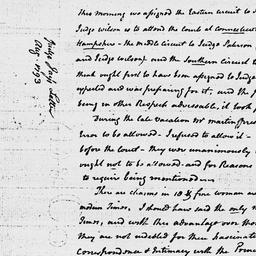 This morning we assigned the Eastern Circuit to
Judge Wilson is to attend the Court at Connecticut
Hampshire - the middle Circuit to Judge
and Judge and the Southern Circuit
think ought first to have been assigned to Judge
and was preparing for it; and the
being in other Respects adviseable, it took
During the late vacation Mr
Error to be allowed - I refused to allow it -
before the Court - they were unanimously
ought not to be allowed - and for Reasons
to require being mentioned
There are charms in fine women
modern Times. I should have had the only
Times, and with this advantage over
they are not indebted for their fascinat
Correspondence & Intimacy with the
Judge Jays Letter
Aug. 1793